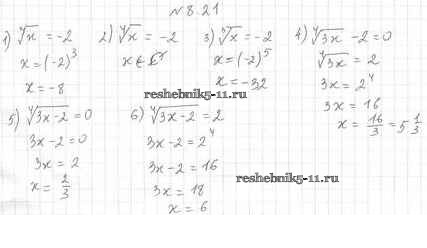 №8.21
1) ∛x = -2
x = (-2)³
x = -8
2) ⁴√x = -2
x ∈ ∅
3) ⁵√x = -2
x = (-2)⁵
x = -32
4) ⁴√3x - 2 = 0
⁴√3x = 2
3x = 2⁴
3x = 16
x = 16/3 = 5 1/3
reshebnik5-11.ru
5) ⁴√3x-2 = 0
3x - 2 = 0
3x = 2
x = 2/3
6) ⁴√3x-2 = 2
3x - 2 = 2⁴
3x - 2 = 16
3x = 18
x = 6
reshebnik5-11.ru